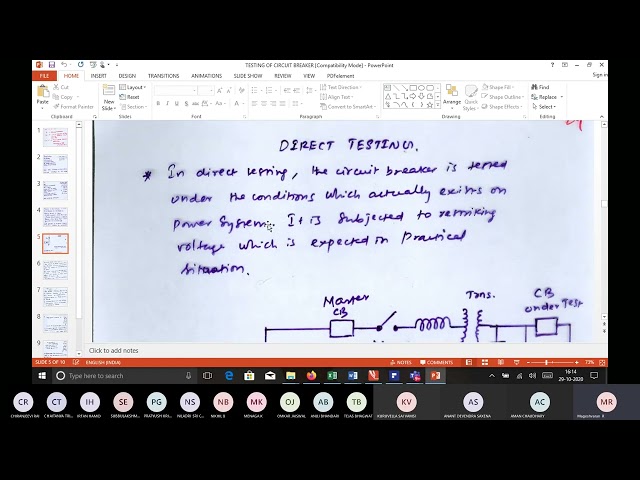 TESTING OF CIRCUIT BREAKER [Compatibility Mode] - PowerPoint
Sign in
FILE HOME INSERT DESIGN TRANSITIONS ANIMATIONS SLIDE SHOW REVIEW VIEW PDFelement
Paste
Cut
Copy
Format Painter
Clipboard
New Slide
Layout
Reset
Section
Slides
Font
Paragraph
Text Direction
Align Text
Convert to SmartArt
Arrange
Quick Styles
Shape Fill
Shape Outline
Shape Effects
Drawing
Find
Replace
Select
Editing
DIRECT TESTING.
* In direct testing, the circuit breaker is tested
under the conditions which actually exists on
power system. It is subjected to restriking
voltage which is expected in Practical
situation.
Master
CB
Trans.
CB
under Test
1
2
3
4
5
6
7
8
9
Click to add notes
SLIDE 5 OF 10
ENGLISH (INDIA)
NOTES
COMMENTS
73%
Type here to search
ENG
16:14
29-10-2020
CR
CT
IH
SE
PG
NS
NB
MK
OJ
AB
TB
KV
AS
AC
MR
CHIRANJEEVI RAI
CHAITANYA TRI...
IRFAN HAMID
SUBBULAKSHM...
PRATYUSH KRI...
NILADRI SRI C...
NIKHIL B
MONAGA K
OMKAR JAISWAL
ANJLI BHANDARI
TEJAS BHAGWAT
KURUVELLA SATYAMSI
ANANT DEVENDRA SAXENA
AMAN CHAUDHARY
Mageshvaran R